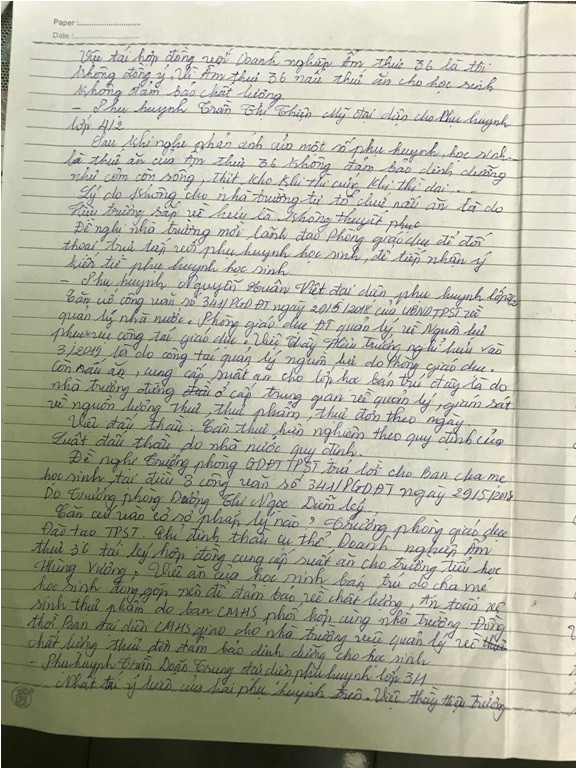 Paper :
Date :
Việc tái hợp đồng với Doanh nghiệp Ẩm thực 36 là thì
không đồng ý, vì Ẩm thực 36 nấu thức ăn cho học sinh
không đảm bảo chất lượng.
- Phụ huynh Trần Thị Thiện Mỹ đại diện cho Phụ huynh
lớp 4/2
Sau khi nghe phản ánh của một số phụ huynh, học sinh
là thức ăn của Ẩm thực 36 không đảm bảo dinh dưỡng
như cơm còn sống, thịt kho khi thì cứng, khi thì dai...
Lý do không cho nhà trường tự tổ chức nấu ăn là do
Hiệu trưởng sắp về hưu là không thuyết phục
Đề nghị nhà trường mời lãnh đạo Phòng giáo dục để đối
thoại trực tiếp với phụ huynh học sinh, để tiếp nhận ý
kiến từ phụ huynh học sinh.
- Phụ huynh Nguyễn Xuân Việt đại diện phụ huynh lớp
Căn cứ công văn số 341/PGDĐT ngày 29/5/2018 của UBND TPST về
quản lý nhà nước. Phòng giáo dục ĐT quản lý về Người sự
phục vụ công tác giáo dục. Việc Thầy Hiệu Trưởng nghỉ hưu vào
3/2019 là do công tác quản lý người sự do Phòng giáo dục.
Còn nấu ăn, cung cấp suất ăn cho lớp học bán trú đây là do
nhà trường đứng đầu ở cấp trung gian về quản lý, giám sát
về nguồn lương thực, thực phẩm, thực đơn theo ngày.
Việc đấu thầu: Cần thực hiện nghiêm theo quy định của
Luật đấu thầu do nhà nước quy định.
Đề nghị Trưởng phòng GDĐT TPST trả lời cho Ban cha mẹ
học sinh, tại điều 3 công văn số 341/PGDĐT ngày 29/5/2018
Do Trưởng phòng Dương Thị Ngọc Diễm ký,
Căn cứ vào cơ sở pháp lý nào? Trưởng phòng giáo dục
Đào tạo TPST. Chỉ định thầu cụ thể Doanh nghiệp Ẩm
thực 36 tái ký hợp đồng cung cấp suất ăn cho trường tiểu học
Hùng Vương, Việc ăn của học sinh bán trú do cha mẹ
học sinh đóng góp nên để đảm bảo về chất lượng, An toàn vệ
sinh thực phẩm do ban CMHS phối hợp cùng nhà trường. Đồng
thời Ban đại diện CMHS giao cho nhà trường việc quản lý về
chất lượng thực đơn đảm bảo dinh dưỡng cho học sinh
- Phụ huynh Trần Doãn Trung đại diện phụ huynh lớp 3/1
Nhất trí ý kiến của hai phụ huynh trên. Việc thầy hiệu trưởng